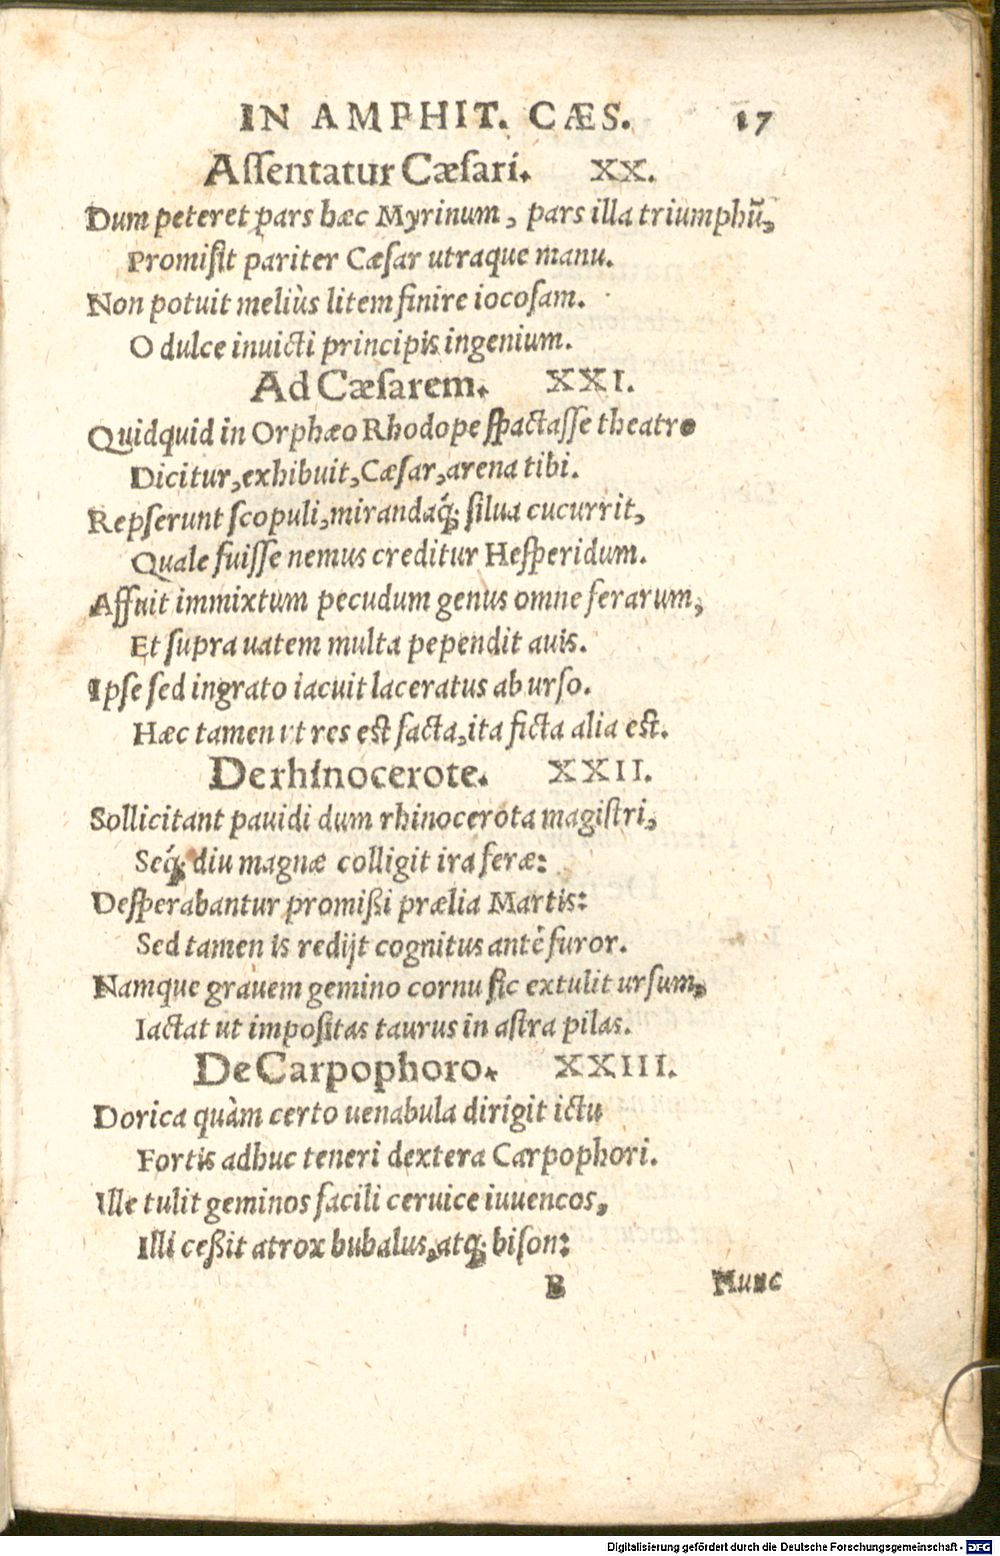 IN AMPHIT. CÆS. 17
Aſſentatur Cæſari. XX.
Dum peteret pars hæc Myrinum, pars illa triumphū,
Promiſit pariter Cæſar utraque manu.
Non potuit meliùs litem finire iocoſam.
O dulce inuicti principis ingenium.
Ad Cæſarem. XXI.
Quidquid in Orphæo Rhodope ſpactaſſe theatro
Dicitur, exhibuit, Cæſar, arena tibi.
Repſerunt ſcopuli, mirandaq́; ſilua cucurrit,
Quale fuiſſe nemus creditur Heſperidum.
Affuit immixtum pecudum genus omne ferarum,
Et ſupra uatem multa pependit auis.
Ipſe ſed ingrato iacuit laceratus ab urſo.
Hæc tamen ut res eſt facta, ita ficta alia eſt.
De rhinocerote. XXII.
Sollicitant pauidi dum rhinocerota magiſtri,
Seq́; diu magnæ colligit ira feræ:
Deſperabantur promißi prælia Martis:
Sed tamen is redijt cognitus antè furor.
Namque grauem gemino cornu ſic extulit urſum,
Iactat ut impoſitas taurus in aſtra pilas.
De Carpophoro. XXIII.
Dorica quàm certo uenabula dirigit ictu
Fortis adhuc teneri dextera Carpophori.
Ille tulit geminos facili ceruice iuuencos,
Illi ceßit atrox bubalus, atq; biſon:
B Nunc
Digitalisierung gefördert durch die Deutsche Forschungsgemeinschaft - DFG